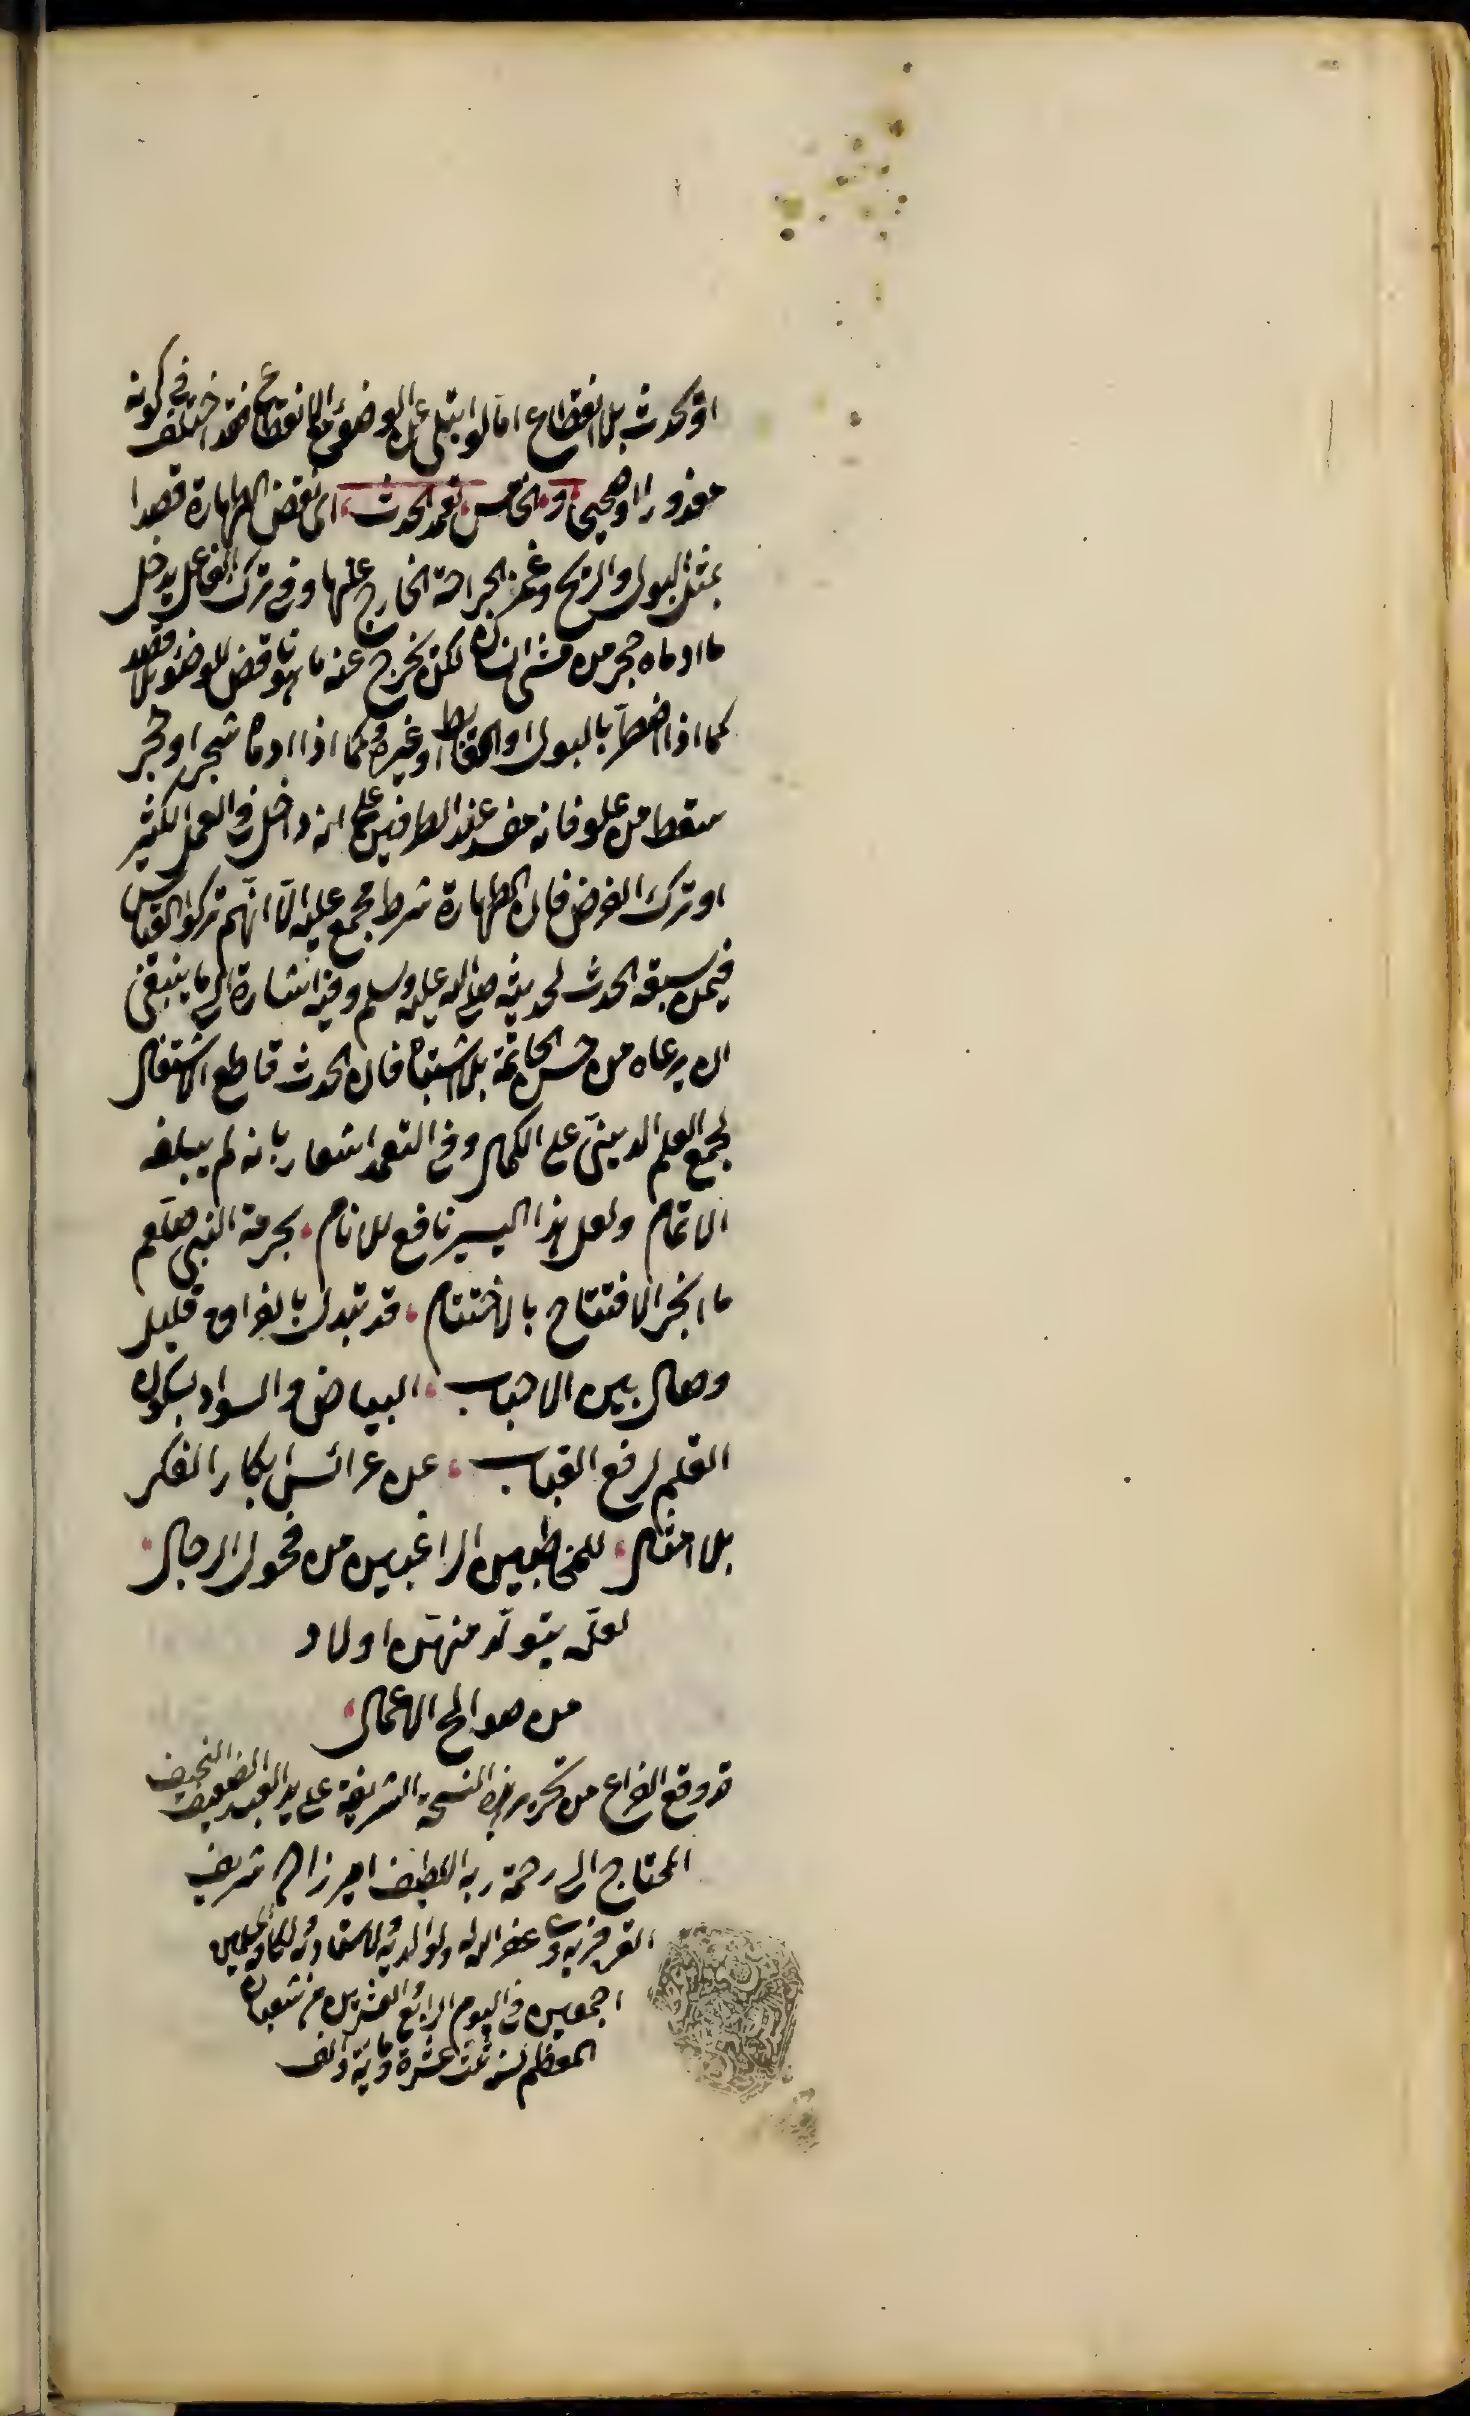 او تحدث بلا انقطاع اما لو ابتلى على الوضوء مع الانقطاع فقد اختلف في كونه
معذورا او صحيح و الخامس تعمد الحدث اى نقض الطهارة قصدا
بمثل البول والريح وغمز الجراحة الخارج عنها وفى ترك الفاعل يدخل
ما ادماه حجر من مشى انسان لكن يخرج عنه ما هو ناقض للوضوء بلا قصد
كما اذا اضطر بالبول او الغائط او غيره وكما اذا ادماه شجر او حجر
سقط من علو فانه مفسد عند الطرفين على انه داخل فى العمل الكثير
او ترك الفرض فان الطهارة شرط مجمع عليه الّا انّهم تركوا القياس
فيمن سبقه الحدث لحديثه صلى الله عليه وسلم وفيه اشارة الى ما ينبغى
ان يرعاه من حسن الخاتمة بلا اشتباه فان الحدث قاطع الاشتغال
لجمع العلم الدينىّ على الكمال وفى التعمد اشعار بانه لم يبلغه
الاتمام ولعل هذا اليسير نافع للانام بحرمة النبى صلعم
ما انجر الافتتاح بالاختتام قد تبدل بالفراق قليل
وصال بين الاحباب البياض والسواد بكون
القلم لرفع النقاب عن عرائس ابكار الفكر
بلا مثال للمخاطبين الراغبين من فحول الرجال
لعلّه يتولّد منهنّ اولاد
من صوالح الاعمال
قد وقع الفراغ من تحرير هذه النسخة الشريفة على يد العبد الضعيف النحيف
المحتاج الى رحمة ربه اللطيف امير زاه شريف
غفر الله له ولوالديه ولاستاذيه
اجمعين فى اليوم الرابع العشرين من شعبان
المعظم سنه ثلث عشرة ومأية والف